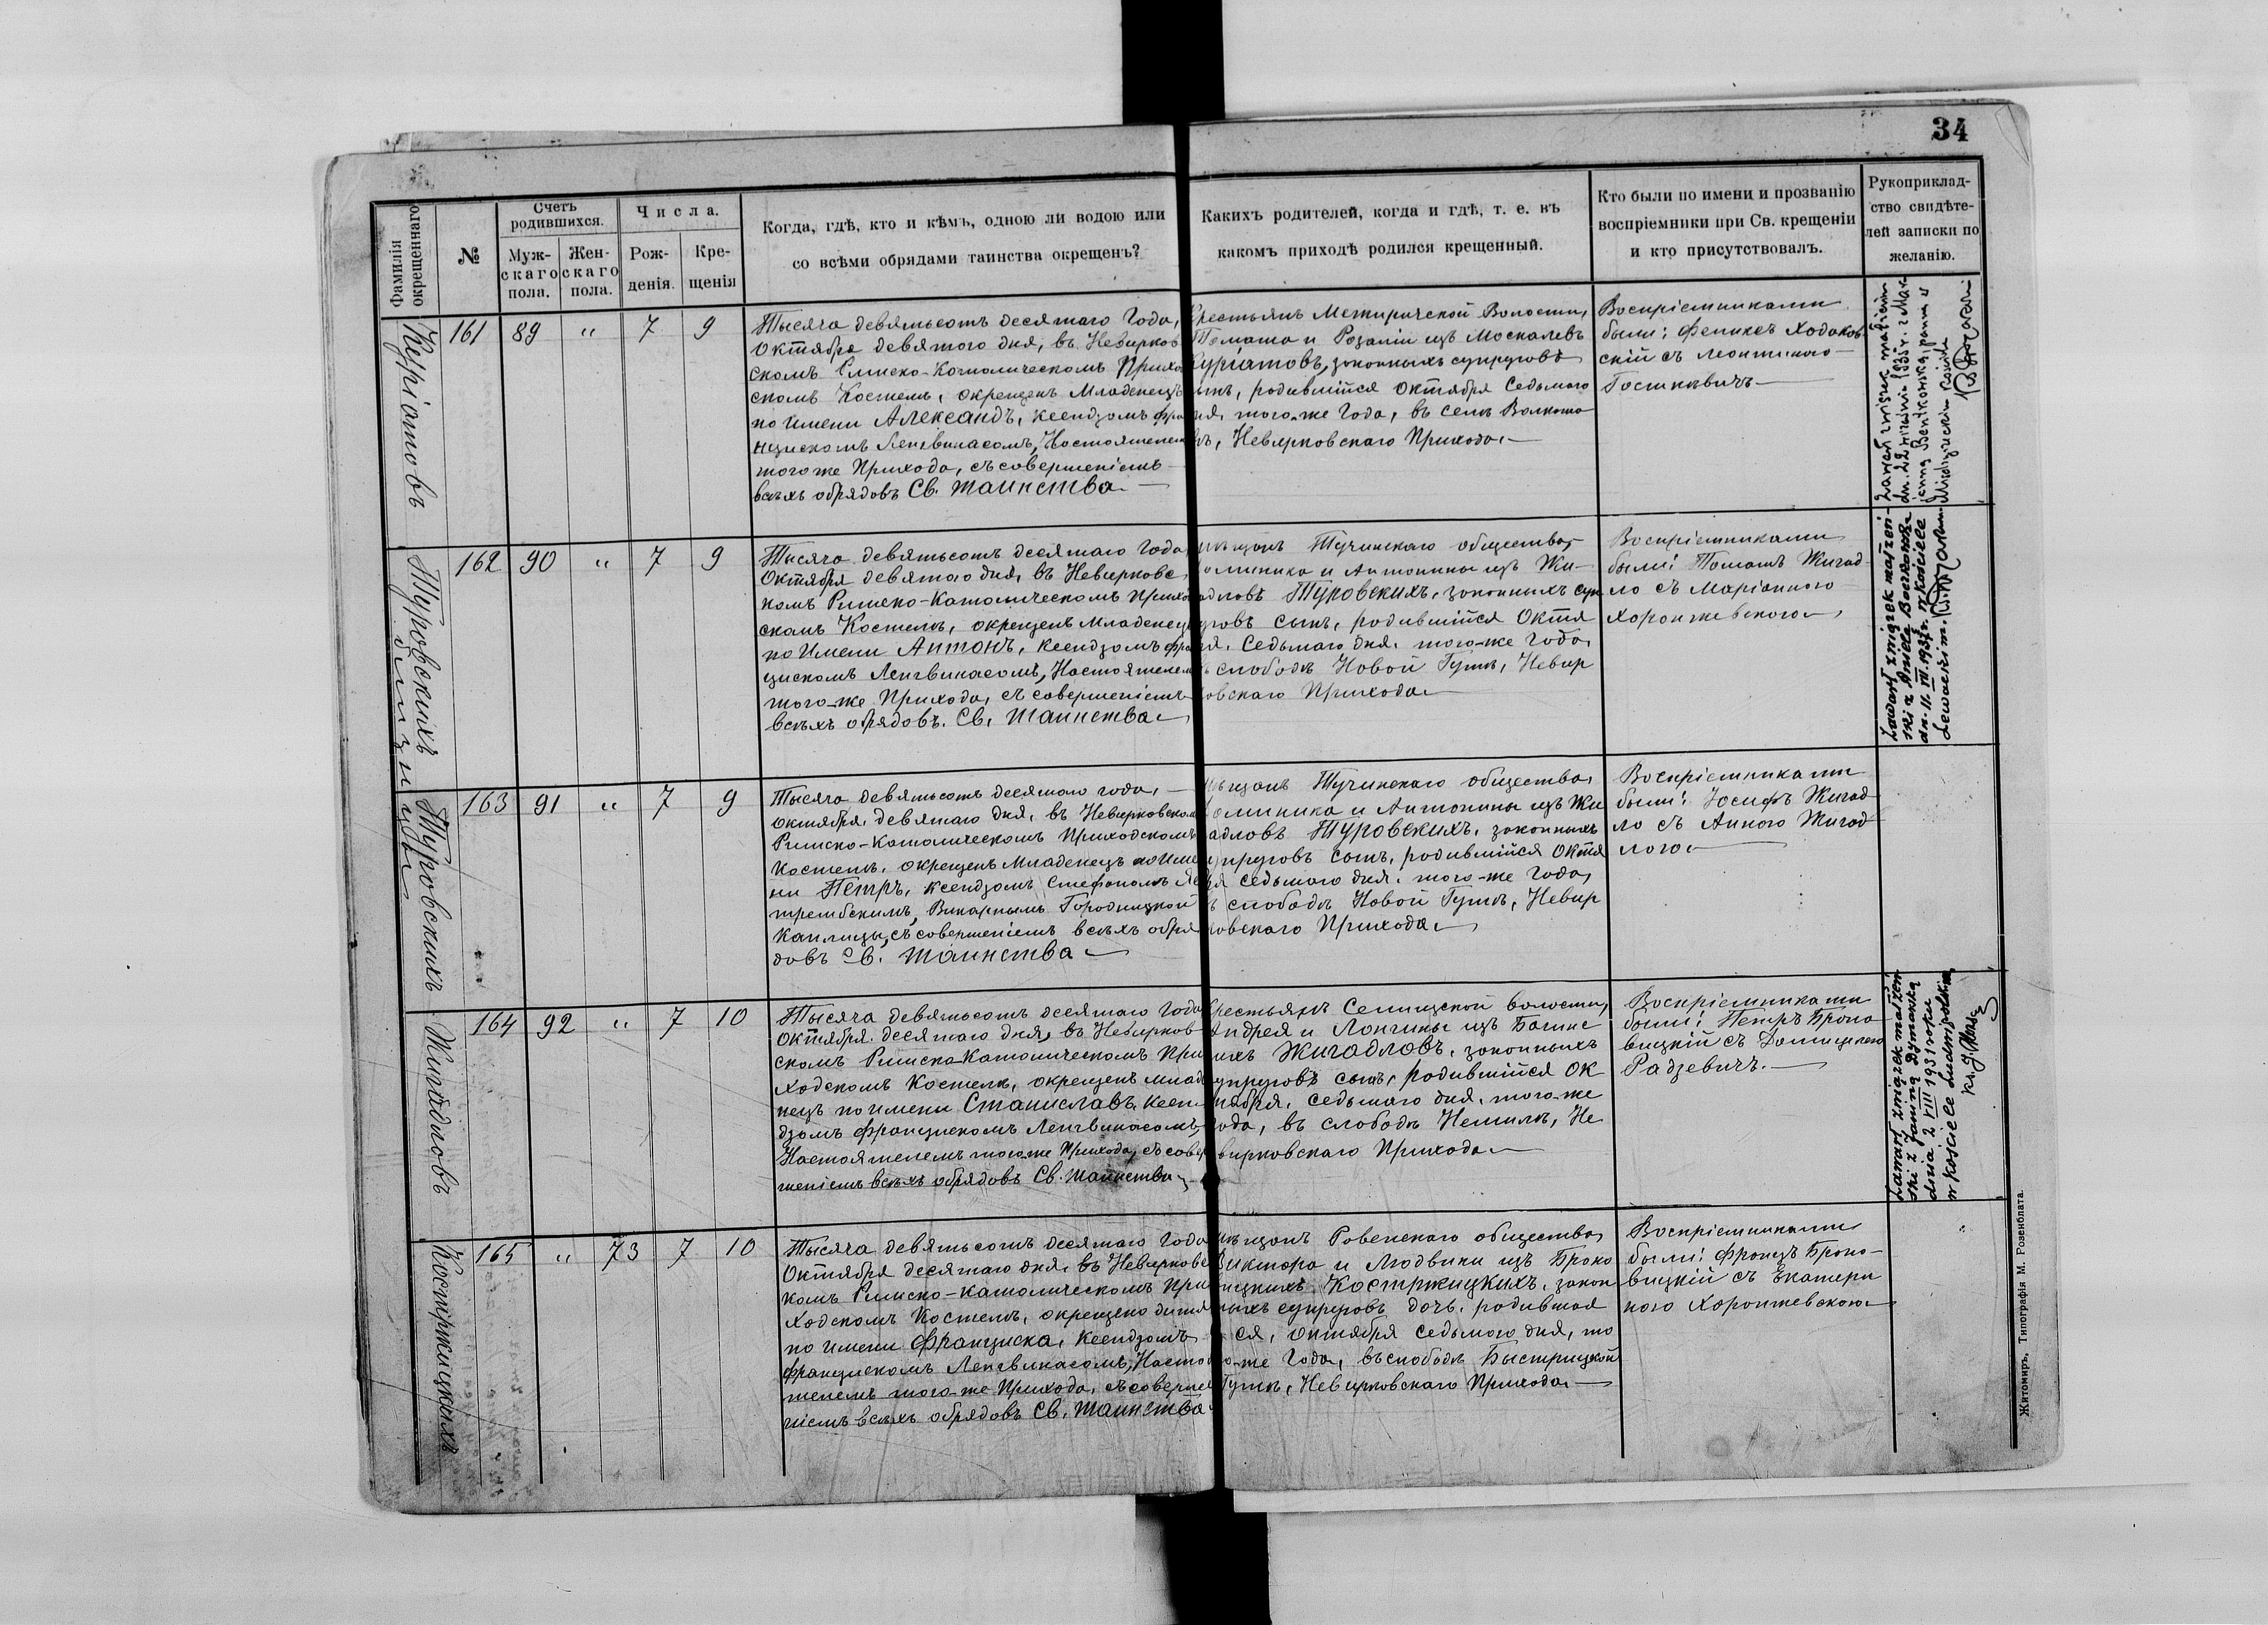 34
Фамилія окрещеннаго
№
Счетъ родившихся.
Муж-скаго пола.
Жен-скаго пола.
Числа.
Рож-денія.
Кре-щенія
Когда, гдѣ, кто и кѣмъ, одною ли водою или
со всѣми обрядами таинства окрещенъ?
Какихъ родителей, когда и гдѣ, т. е. въ
какомъ приходѣ родился крещенный.
Кто были по имени и прозванію
воспріемники при Св. крещеніи
и кто присутствовалъ.
Рукоприклад-
ство свидѣте-
лей записки по
желанію.
Куріатовъ
161 89 " 7 9
Тысяча девятьсотъ десятаго Года,
Октября девятого дня, въ Невирков
скомъ Римско-Католическомъ Прихо
скомъ Костелѣ, окрещенъ Младенецъ
по Имени Александъ, Ксендзомъ Фран
цискомъ Ленгвинасомъ, Настоятелем
того же Прихода, съ совершеніемъ
всѣхъ обрядовъ Св. Таинства.
Крестьянъ Межиричской Волости,
Томаша и Розаліи изъ Москалевъ
Куріатовъ, законныхъ супруговъ
сынъ, родившійся Октября Седьмого
дня, того-же Года, въ селѣ
Невирковскаго Прихода.
Воспріемниками
были: Феликсъ Ходаков
скій съ Леонтиною
Госткевичъ
Zawarł związek małżeński
dn. 22 1935 r. z Mar
janną Bentkowską, panną w
Międzyrzeckim kościele
Туровскихъ
близнецы
162 90 " 7 9
Тысяча девятьсотъ десятаго Года
Октября девятаго дня, въ Невирковс
комъ Римско-Католическомъ Прихо
скомъ Костелѣ, окрещенъ Младенец
по Имени Антонъ, Ксендзомъ Фран
цискомъ Ленгвинасомъ, Настоятелем
того-же Прихода, съ совершеніемъ
всѣхъ обрядовъ. Св. Таинства.
Мѣщанъ Тучинскаго общества,
Доминика и Антонины изъ Жи-
гадловъ Туровскихъ, законныхъ суп
руговъ сынъ, родившійся Октя
бря. Седьмаго дня. того-же Года,
въ слободѣ Новой Гутѣ, Невир
ковскаго Прихода.
Воспріемниками
были: Томашъ Жигад-
ло съ Маріанною
Хоронжевскою.
Zawarł związek małżeń-
ski z Anielą
dn. 11. VII. 1937 r. w kościele
Туровскихъ
163 91 " 7 9
Тысяча девятьсотъ десятаго года,
октября, девятаго дня, въ Невирковском
Римско-Католическомъ Приходскомъ
Костелѣ, окрещенъ Младенецъ по Име
ни Петръ, Ксендзомъ Стефаномъ Яс
трембскимъ, Викарнымъ Городницкой
Каплицы, съ совершеніемъ всѣхъ обря
довъ Св. Таинства
Мѣщанъ Тучинскаго общества,
Доминика и Антонины изъ Жи
гадловъ Туровскихъ, законныхъ
супруговъ сынъ, родившійся Октя
бря седьмаго дня, того-же Года,
въ слободѣ Новой Гутѣ, Невир
ковскаго Прихода.
Воспріемниками
были: Іосифъ Жигад-
ло съ Анною Жигад
лого.
Жигадловъ
164 92 " 7 10
Тысяча девятьсотъ десятаго Года
Октября. десятаго дня, въ Невирков
скомъ Римско-Католическомъ При
ходскомъ Костелѣ, окрещенъ Младе
нецъ по имени Станиславъ, Ксен-
дзомъ Францискомъ Ленгвинасомъ,
Настоятелемъ того же Прихода, съ совер
шеніемъ всѣхъ обрядовъ Св. Таинства.
Крестьянъ Селищской волости,
Андрея и Лонгины изъ
Жигадловъ, законныхъ
супруговъ сынъ, родившійся Ок-
тября, седьмаго дня, того-же
года, въ слободѣ Немилѣ, Не
вирковскаго Прихода.
Воспріемниками
были: Петръ Броно-
вицкій съ Домицелею
Радзевичъ.
Zawarł związek małżeń
ski z Janiną Dymowską
dnia 2 VIII 1931 roku
w kościele Ludwipolskim
Костржицкихъ
165 " 73 7 10
Тысяча девятьсотъ десятаго Года
Октября десятаго дня, въ Невирковс
комъ Римско-католическомъ При
ходскомъ Костелѣ, окрещено дитя
по имени Франциска, Ксендзомъ
Францискомъ Ленгвинасомъ, Настоя
телемъ того-же Прихода, съ соверше
ніемъ всѣхъ обрядовъ Св. Таинства
Мѣщанъ Ровенскаго общества,
Виктора и Людвики изъ Броно
вицкихъ Костржицкихъ, закон
ныхъ супруговъ дочь, родившая
ся, октября седьмого дня, то
го-же Года, въ слободѣ Быстрицкой
Гутѣ, Невирковскаго Прихода.
Воспріемниками
были: Францъ Броно-
вицкій съ Екатери
ною Хоронжевскою.
Житомиръ, Типографія М. Розенблата.